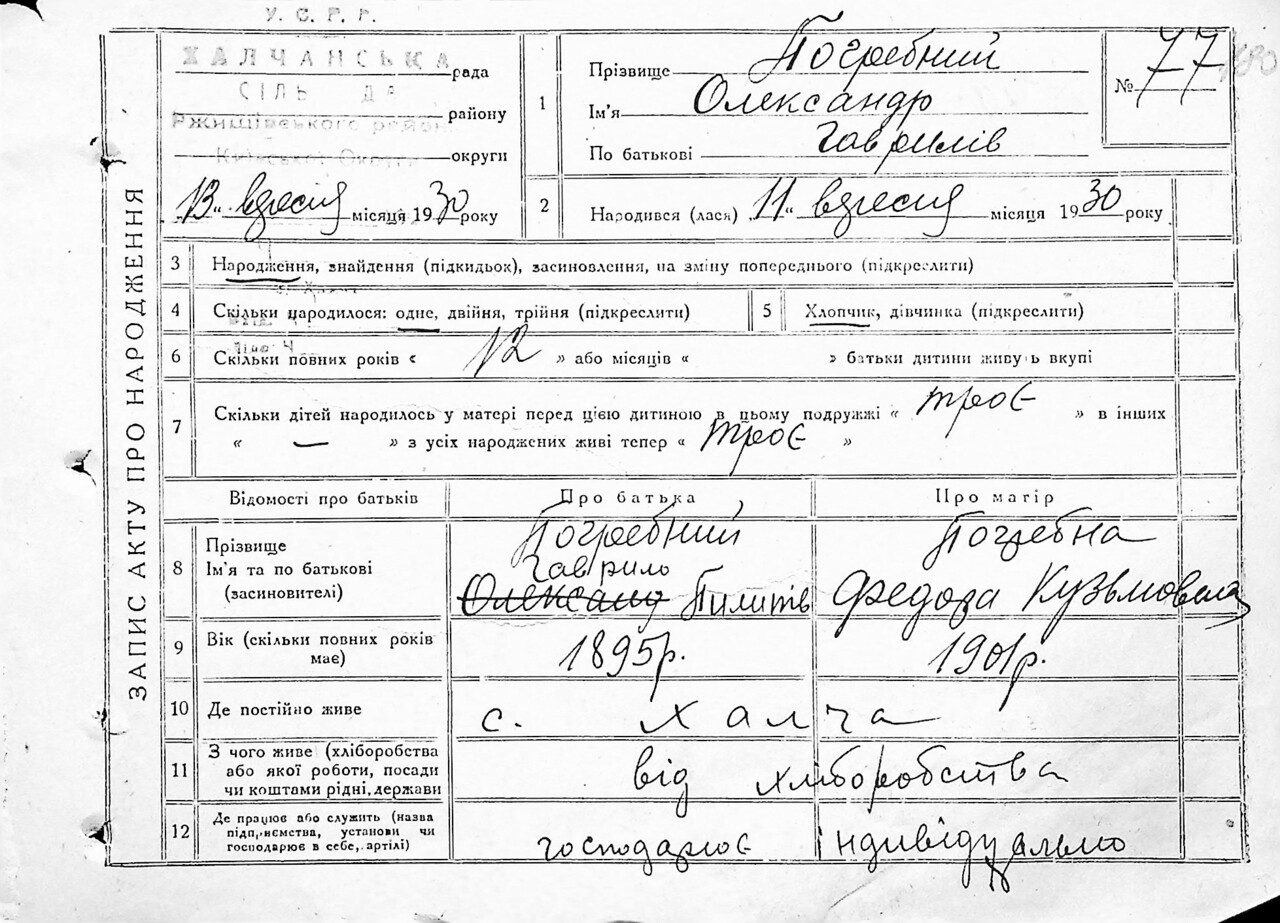 У. С. Р. Р.
ХАЛЧАНСЬКА рада
СІЛЬ ДА
Ржищівського район району
Київської Округи округи
"13" вересня місяця 1930 року
1 Прізвище Погребний
Ім'я Олександр
По батькові Гаврилів
№ 77
2 Народився (лася) "11" вересня місяця 1930 року
ЗАПИС АКТУ ПРО НАРОДЖЕННЯ
3 Народження, знайдення (підкидьок), засиновлення, на зміну попереднього (підкреслити)
4 Скільки народилося: одне, двійня, трійня (підкреслити)
5 Хлопчик, дівчинка (підкреслити)
6 Скільки повних років « 12 » або місяців « » батьки дитини живуть вкупі
7 Скільки дітей народилось у матері перед цією дитиною в цьому подружжі « троє » в інших
« — » з усіх народжених живі тепер « троє »
Відомості про батьків Про батька Про матір
8 Прізвище
Ім'я та по батькові
(засиновителі)
Погребний
Гаврило
Олександр Пилипів
Погребна
Федора Кузьмовна
9 Вік (скільки повних років
має)
1895р. 1901р.
10 Де постійно живе с. Халча
11 З чого живе (хліборобства
або якої роботи, посади
чи коштами рідні, держави
від хліборобства
12 Де працює або служить (назва
підприємства, установи чи
господарює в себе, артілі)
господарює індивідуально